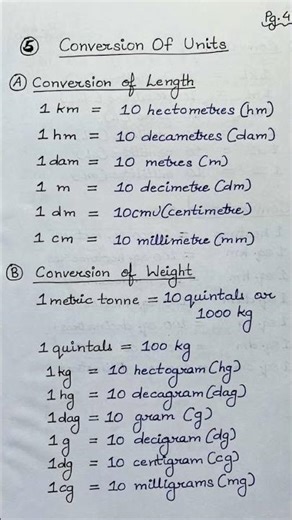 Pg. 4
5 Conversion Of Units
A Conversion of Length
1 km = 10 hectometres (hm)
1 hm = 10 decametres (dam)
1 dam = 10 metres (m)
1 m = 10 decimetre (dm)
1 dm = 10cm (centimetre)
1 cm = 10 millimetre (mm)
B Conversion of Weight
1 metric tonne = 10 quintals or
1000 kg
1 quintals = 100 kg
1kg = 10 hectogram (hg)
1hg = 10 decagram (dag)
1dag = 10 gram (g)
1g = 10 decigram (dg)
1dg = 10 centigram (cg)
1cg = 10 milligrams (mg)